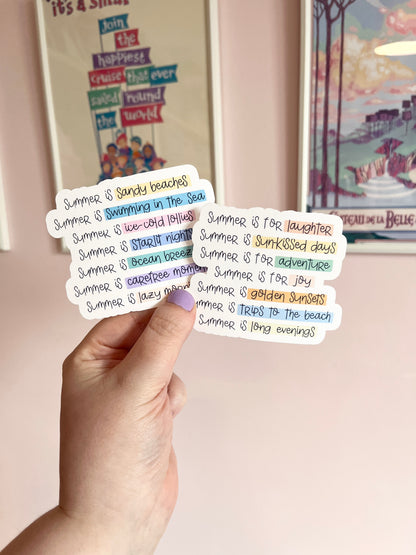 it's a small
Join
the
happiest
cruise
that
ever
sailed
'round
the
world
Summer is sandy beaches
Summer is swimming in the sea
Summer is ice-cold lollies
Summer is starlit nights
Summer is ocean breeze
Summer is carefree
Summer is lazy
Summer is for laughter
Summer is sun-kissed days
Summer is for adventure
is for joy
Summer is golden sunsets
Summer is trips to the beach
Summer is long evenings
de la Belle